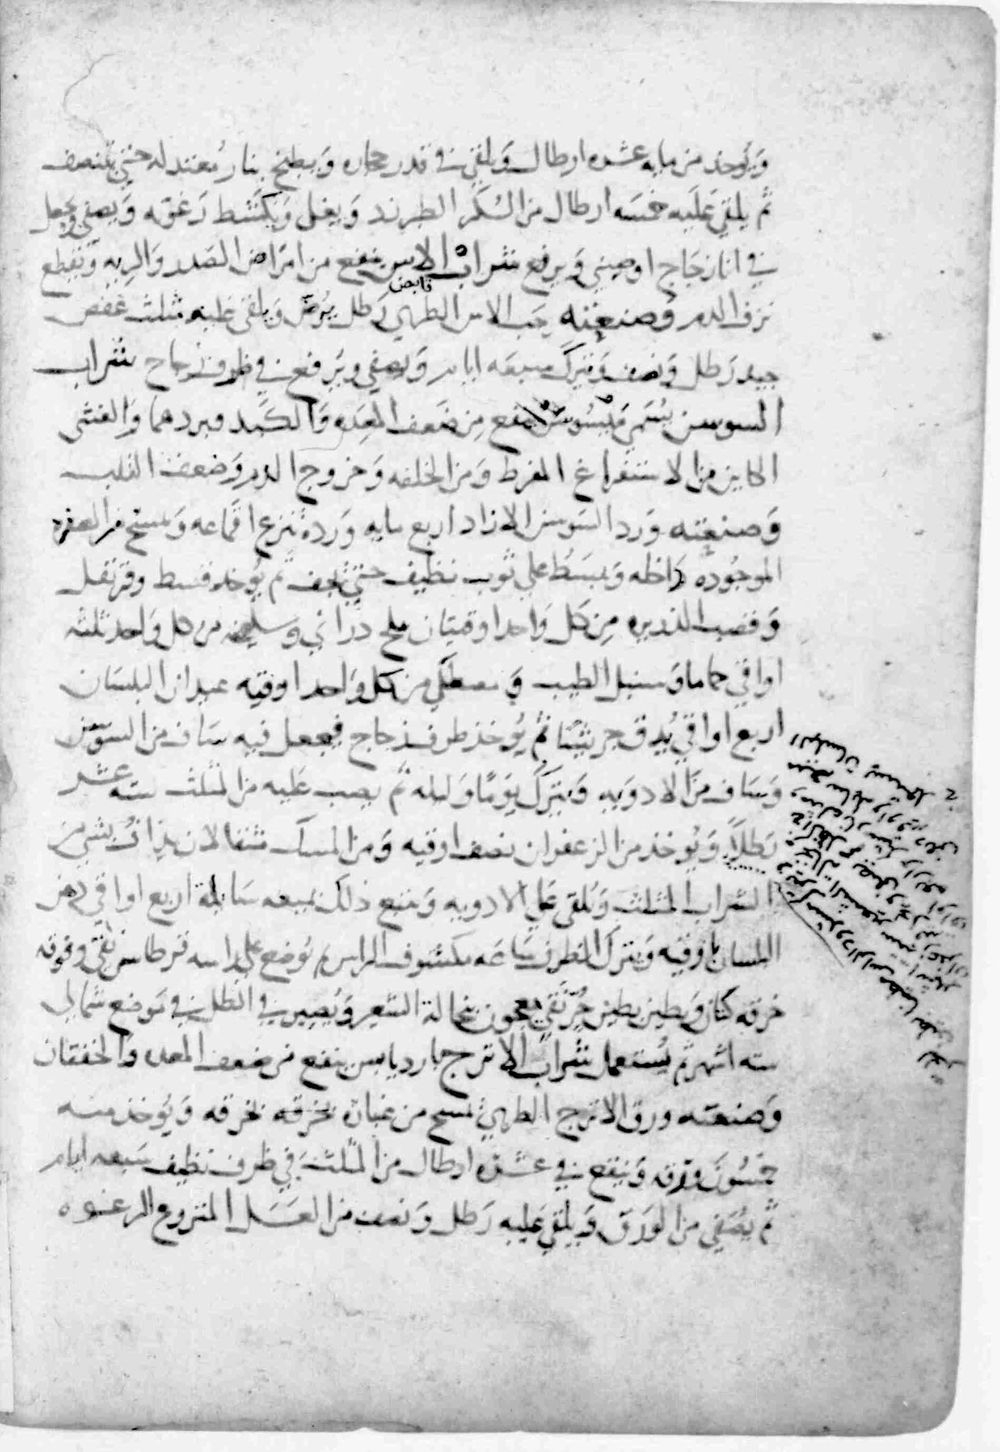 ويوخذ من مايه عشره ارطال ويلقى في قدر حجاره ويطبخ بنار معتدله حتى يتنصف
ثم يلقى عليه خمسه ارطال من السكر الطبرزد ويغلى ويكشط رغوته ويصفى ويجعل
في انا زجاج او صيني ويرفع شراب الاس ينفع من امراض الصدر والريه ويقطع
نزف الدم وصنعته حب الاس الطري رطل يرض ويلقى عليه مثلث عفص
قابض
جيد رطل ونصف ويترك سبعه ايام ويصفى ويرفع في ظرف زجاج شراب
السوسن يسمى ميسوسن ينفع من ضعف المعده والكبد وبردهما والغشي
الكاين من الاستفراغ المفرط ومن الخلفه وخروج الدم وضعف القلب
وصنعته ورد السوسن الازاد اربع مايه ورده تنزع اقماعه ويمسح من الصفره
الموجوده داخله ويبسط على ثوب نظيف حتى يجف ثم يوخذ قسط وقرنفل
وقصب الذريره من كل واحد اوقيتان ملح دراني وسليخه من كل واحد ثلثه
اواقي حماما وسنبل الطيب ومصطكى من كل واحد اوقيه عيدان البلسان
اربع اواقي يدق جريشا ثم يوخذ ظرف زجاج فيجعل فيه ساف من السوسن
وساف من الادويه ويترك يوما وليله ثم يصب عليه من المثلث سته عشر
رطلا ويوخذ من الزعفران نصف اوقيه ومن المسك مثقالان يذاف بشي من
الشراب المثلث ويلقى على الادويه ويتبع ذلك بميعه سايله اربع اواقي دهن
البلسان اوقيه ويترك الظرف ساعه مكشوف الراس ثم يوضع على راسه قرطاس نقي وفوقه
خرقه كتان ويطين بطين حر نقي معجون بنخالة الشعير ويصير في الظل في موضع شمالي
سته اشهر ثم يستعمل شراب الاترج حار يابس ينفع من ضعف المعده والخفقان
وصنعته ورق الاترج الطري يمسح من غباره بخرقه بخرقه ويوخذ منه
خمسون ورقه وينقع في عشره ارطال من المثلث في ظرف نظيف سبعه ايام
ثم يصفى من الورق ويلقى عليه رطل ونصف من العسل المنزوع الرغوه